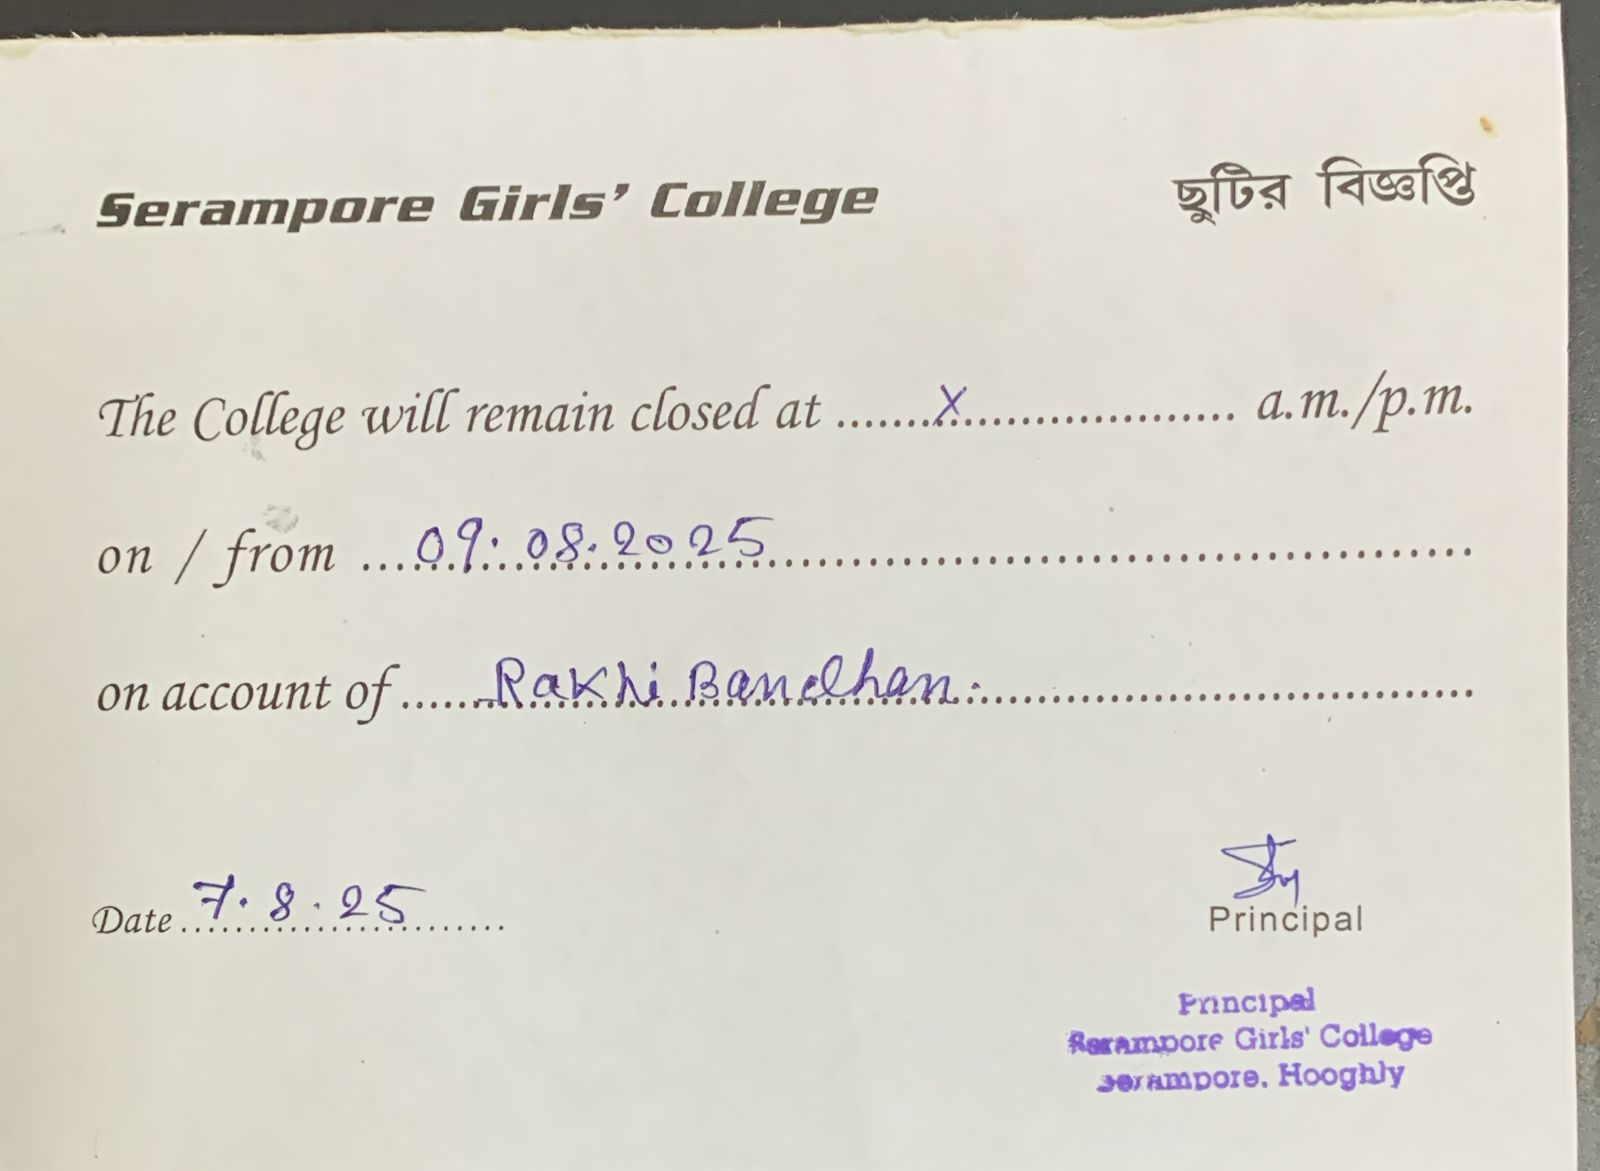 Serampore Girls' College ছুটির বিজ্ঞপ্তি
The College will remain closed at .......X.................... a.m./p.m.
on / from ....09.08.2025..............................................
on account of ......Rakhi Bandhan...................................
Date 7.8.25........
Principal
Principal
Serampore Girls' College
Serampore, Hooghly